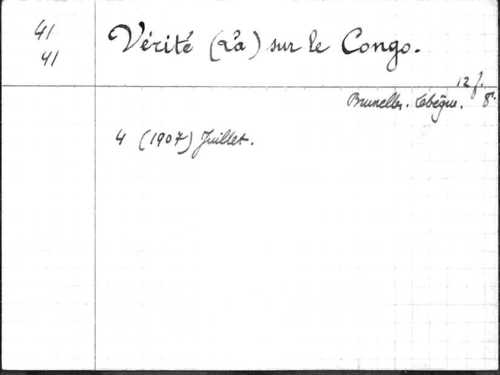 41
41
Vérité (La) sur le Congo.
12 f.
Bruxelles. Lebègue. 8°.
4 (1907) Juillet.